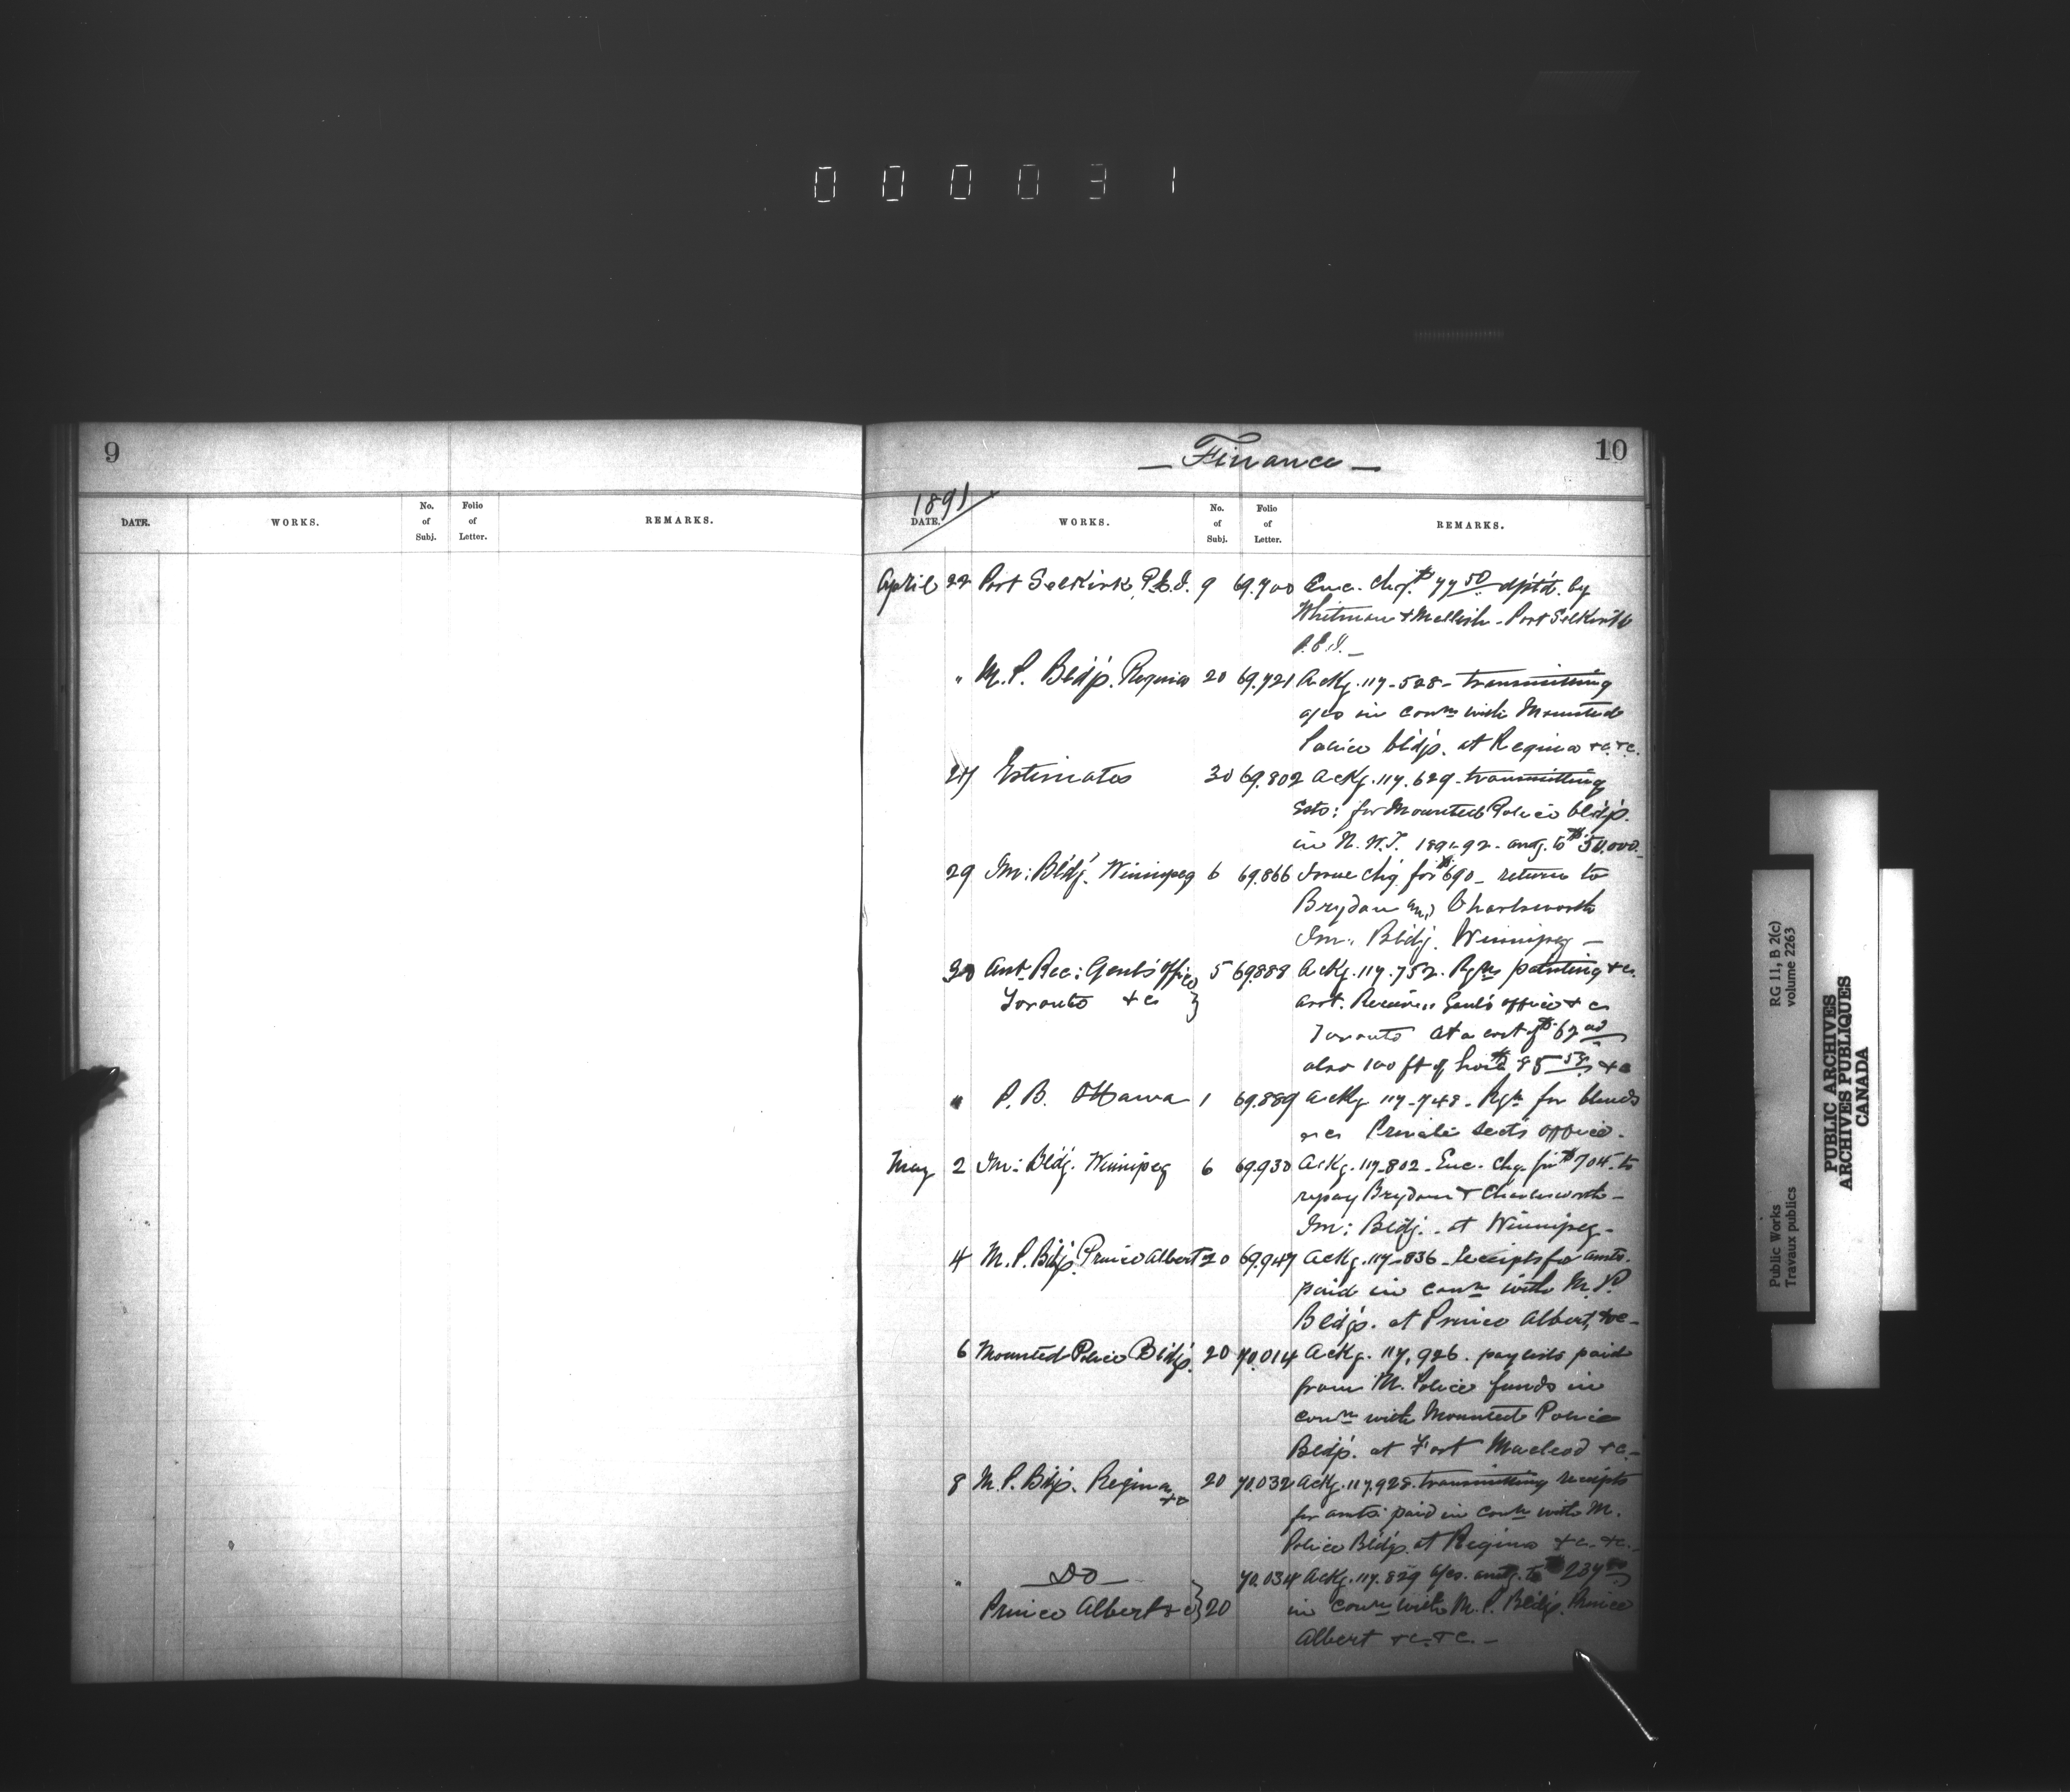 0 0 0 0 3 1
9
DATE. WORKS. No. of Subj. Folio of Letter. REMARKS.
— Finance —
10
1891
DATE. WORKS. No. of Subj. Folio of Letter. REMARKS.
April 22 Port Selkirk, P.E.I. 9 69.700 Enc. chq. $77 50 dp't'd. by
Whitman & Mellish - Port Selkirk
P.E.I. —
" M.P. Bld'gs. Regina 20 69.721 Ackg. 117-528- transmitting
a/cs in conn with Mounted
Police bld'gs. at Regina &c. &c.
27 Estimates 30 69.802 Ackg. 117.629 - transmitting
Ests: for Mounted Police bld'gs.
in N.W.T. 1891-92 - amtg. to $50.000.
29 Im: Bld'g. Winnipeg 6 69.866 Issue chq. for $690 - return to
Brydon and Charlesworth
Im: Bldg. Winnipeg —
30 Asst. Rec: Genl's office 5 69888 Ackg. 117.752. Rqn painting &c.
Toronto &c } asst. Receiver Genl's office &c
Toronto at a cost of $62 00
also 100 ft of hose $85 50 &c
" P.B. Ottawa 1 69.889 Ackg 117-748 - Rqn for blinds
&c Private Sect's office.
May 2 Im: Bldg. Winnipeg 6 69.930 Ackg. 117-802 - Enc. chq. for $704. to
repay Brydon & Charlesworth -
Im: Bldg. - at Winnipeg -
4 M.P. Bldgs. Prince Albert 20 69.947 Ackg. 117-836 - receipts for amts.
paid in conn with M.P.
Bld'gs. at Prince Albert, &c -
6 Mounted Police Bld'gs. 20 70.014 Ackg. 117.926. paylists paid
from M. Police funds in
conn with Mounted Police
Bld'gs. at Fort Macleod &c -
8 M.P. Bldgs. Regina &c 20 70.032 Ackg. 117.928. transmitting receipts
for amts. paid in conn with M.
Police Bldgs. at Regina &c. &c. -
" — Do — 70.034 Ackg. 117.829 a/cs. amtg. to $234
Prince Albert &c } 20 in conn with M.P. Bldgs. Prince
Albert &c. &c. —
RG 11, B 2(c)
volume 2263
Public Works
Travaux publics
PUBLIC ARCHIVES
ARCHIVES PUBLIQUES
CANADA